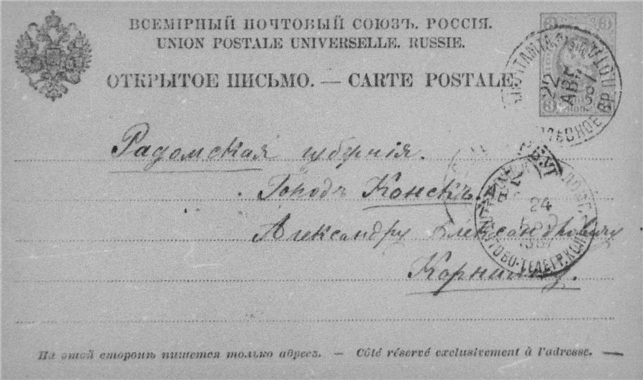 ВСЕМІРНЫЙ ПОЧТОВЫЙ СОЮЗЪ. РОССІЯ.
UNION POSTALE UNIVERSELLE. RUSSIE.
ОТКРЫТОЕ ПИСЬМО. — CARTE POSTALE.
3 3
22
АВГ
Радомская губернія.
Городъ Конскъ.
24
Александру Александровичу
ПОЧТОВО-ТЕЛЕГР. КОН
Корнилову.
На этой сторонѣ пишется только адресъ. — Côté réservé exclusivement à l'adresse.